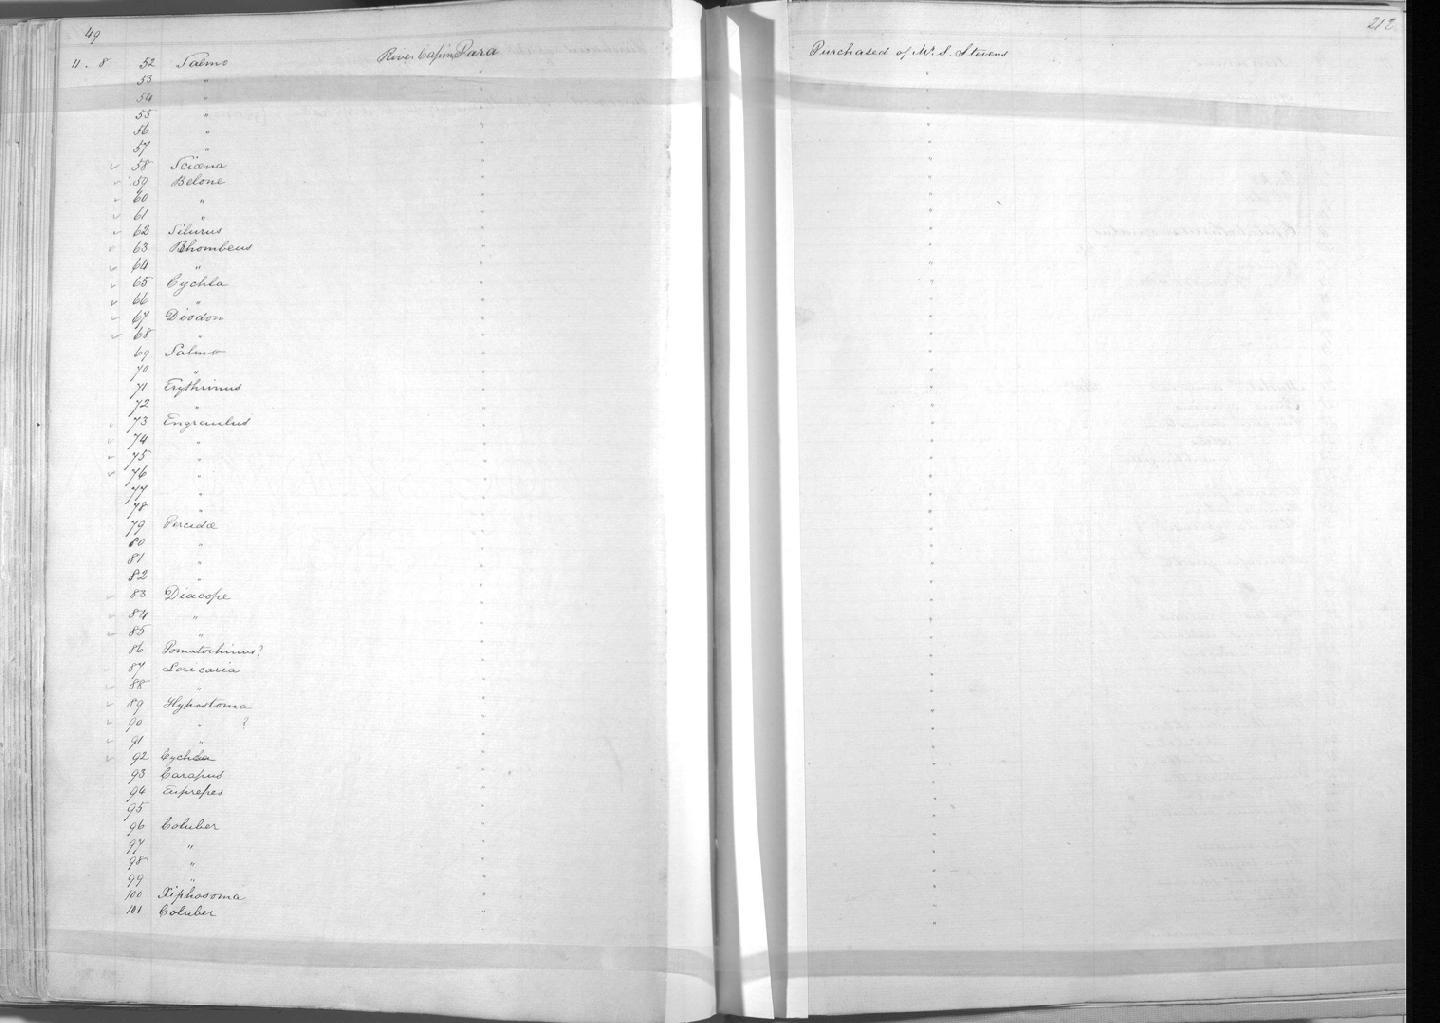 49
212
11 . 8 52 Salmo River Capim, Para Purchased of Mr. S. Stevens
53 "
54 "
55 "
56 "
57 "
58 Sciæna
59 Belone
60 "
61 "
62 Silurus
63 Rhombeus
64 "
65 Cychla
66 "
67 Diodon
68 "
69 Salmo
70 "
71 Erythrinus
72 "
73 Engraulus
74 "
75 "
76 "
77 "
78 "
79 Percidæ
80 "
81 "
82 "
83 Diacope
84 "
85 "
86 ?
87 Loricaria
88 "
89 Hypostoma
90 " ?
91 "
92 Cychla
93 Carapus
94 Euprepes
95
96 Coluber
97 "
98 "
99 "
100 Xiphosoma
101 Coluber